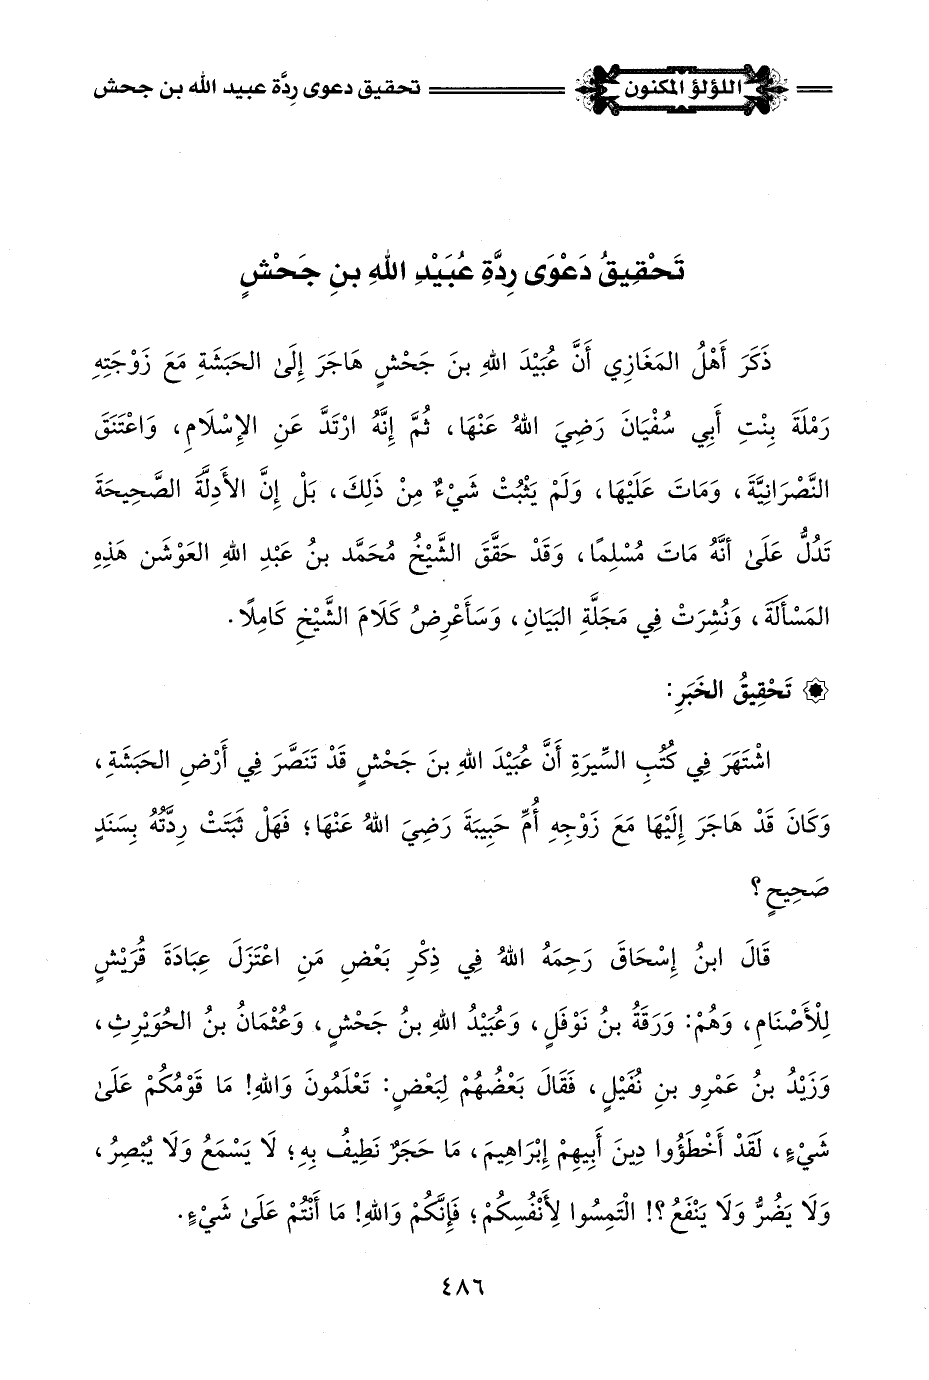 اللؤلؤ المكنون تحقيق دعوى ردَّة عبيد الله بن جحش
تَحْقِيقُ دَعْوَى رِدَّةِ عُبَيْدِ اللهِ بنِ جَحْشٍ
ذَكَرَ أَهْلُ المَغَازِي أَنَّ عُبَيْدَ اللهِ بنَ جَحْشٍ هَاجَرَ إِلَىٰ الحَبَشَةِ مَعَ زَوْجَتِهِ
رَمْلَةَ بِنْتِ أَبِي سُفْيَانَ رَضِيَ اللهُ عَنْهَا، ثُمَّ إِنَّهُ ارْتَدَّ عَنِ الإِسْلَامِ، وَاعْتَنَقَ
النَّصْرَانِيَّةَ، وَمَاتَ عَلَيْهَا، وَلَمْ يَثْبُتْ شَيْءٌ مِنْ ذَلِكَ، بَلْ إِنَّ الأَدِلَّةَ الصَّحِيحَةَ
تَدُلُّ عَلَىٰ أَنَّهُ مَاتَ مُسْلِمًا، وَقَدْ حَقَّقَ الشَّيْخُ مُحَمَّد بنُ عَبْدِ اللهِ العَوْشَن هَذِهِ
المَسْأَلَةَ، وَنُشِرَتْ فِي مَجَلَّةِ البَيَانِ، وَسَأَعْرِضُ كَلَامَ الشَّيْخِ كَامِلًا.
تَحْقِيقُ الخَبَرِ:
اشْتَهَرَ فِي كُتُبِ السِّيرَةِ أَنَّ عُبَيْدَ اللهِ بنَ جَحْشٍ قَدْ تَنَصَّرَ فِي أَرْضِ الحَبَشَةِ،
وَكَانَ قَدْ هَاجَرَ إِلَيْهَا مَعَ زَوْجِهِ أُمِّ حَبِيبَةَ رَضِيَ اللهُ عَنْهَا؛ فَهَلْ ثَبَتَتْ رِدَّتُهُ بِسَنَدٍ
صَحِيحٍ؟
قَالَ ابنُ إِسْحَاقَ رَحِمَهُ اللهُ فِي ذِكْرِ بَعْضِ مَنِ اعْتَزَلَ عِبَادَةَ قُرَيْشٍ
لِلْأَصْنَامِ، وَهُمْ: وَرَقَةُ بنُ نَوْفَلٍ، وَعُبَيْدُ اللهِ بنُ جَحْشٍ، وَعُثْمَانُ بنُ الحُوَيْرِثِ،
وَزَيْدُ بنُ عَمْرِو بنِ نُفَيْلٍ، فَقَالَ بَعْضُهُمْ لِبَعْضٍ: تَعْلَمُونَ وَاللهِ! مَا قَوْمُكُمْ عَلَىٰ
شَيْءٍ، لَقَدْ أَخْطَؤُوا دِينَ أَبِيهِمْ إِبْرَاهِيمَ، مَا حَجَرٌ نَطِيفُ بِهِ؛ لَا يَسْمَعُ وَلَا يُبْصِرُ،
وَلَا يَضُرُّ وَلَا يَنْفَعُ؟! الْتَمِسُوا لِأَنْفُسِكُمْ؛ فَإِنَّكُمْ وَاللهِ! مَا أَنْتُمْ عَلَىٰ شَيْءٍ.
٤٨٦